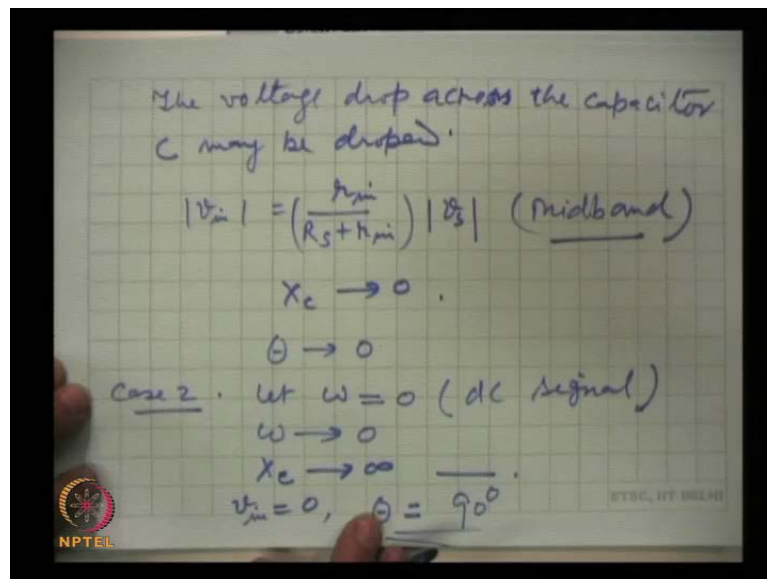 The voltage drop across the capacitor
C may be droped.
|v_in| = (r_in / (R_S + r_in)) |v_s| (midband)
X_c → 0 .
θ → 0
Case 2 . Let ω = 0 (dc signal)
ω → 0
X_c → ∞ .
v_in = 0, θ = 90⁰
ETSC, IIT DELHI
NPTEL